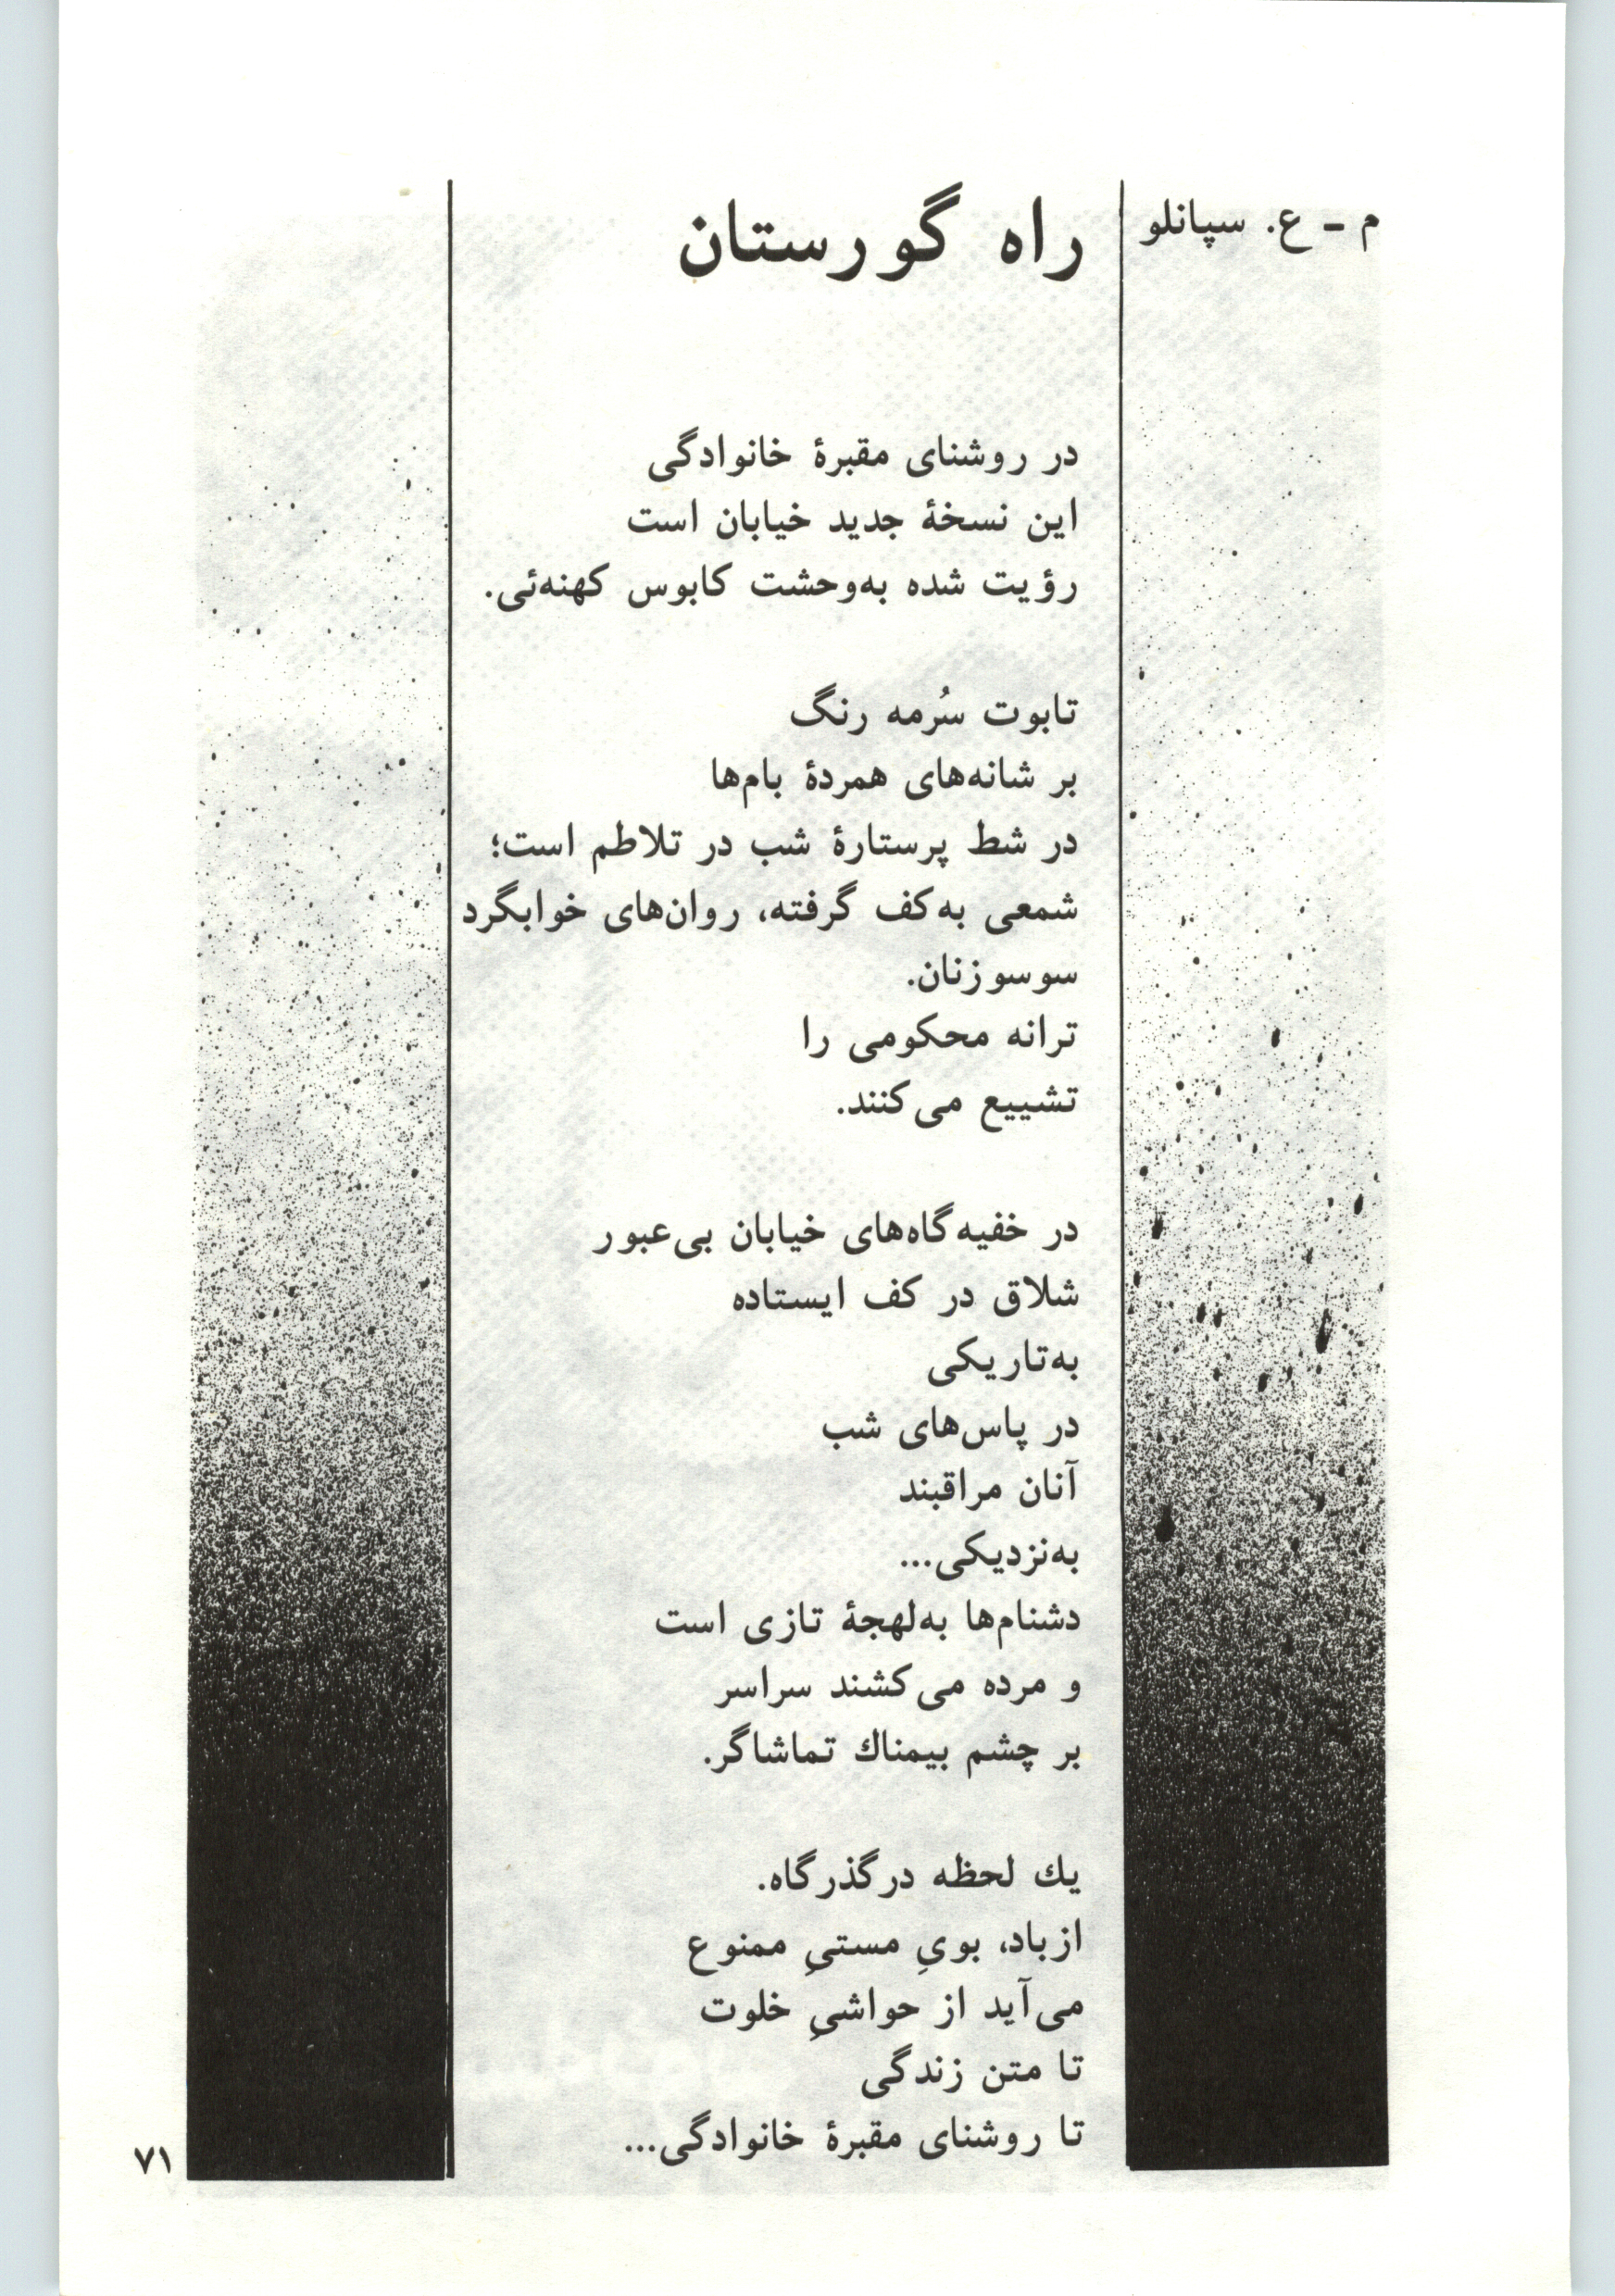 م ـ ع. سپانلو
راه گورستان
در روشنای مقبرهٔ خانوادگی
این نسخهٔ جدید خیابان است
رؤیت شده به‌وحشت کابوس کهنه‌ئی.
تابوت سُرمه رنگ
بر شانه‌های همردهٔ بام‌ها
در شط پرستارهٔ شب در تلاطم است؛
شمعی به‌کف گرفته، روان‌های خوابگرد
سوسوزنان.
ترانه محکومی را
تشییع می‌کنند.
در خفیه‌گاه‌های خیابان بی‌عبور
شلاق در کف ایستاده
به‌تاریکی
در پاس‌های شب
آنان مراقبند
به‌نزدیکی...
دشنام‌ها به‌لهجهٔ تازی است
و مرده می‌کشند سراسر
بر چشم بیمناك تماشاگر.
یك لحظه درگذرگاه.
ازباد، بویِ مستیِ ممنوع
می‌آید از حواشیِ خلوت
تا متن زندگی
تا روشنای مقبرهٔ خانوادگی...
۷۱